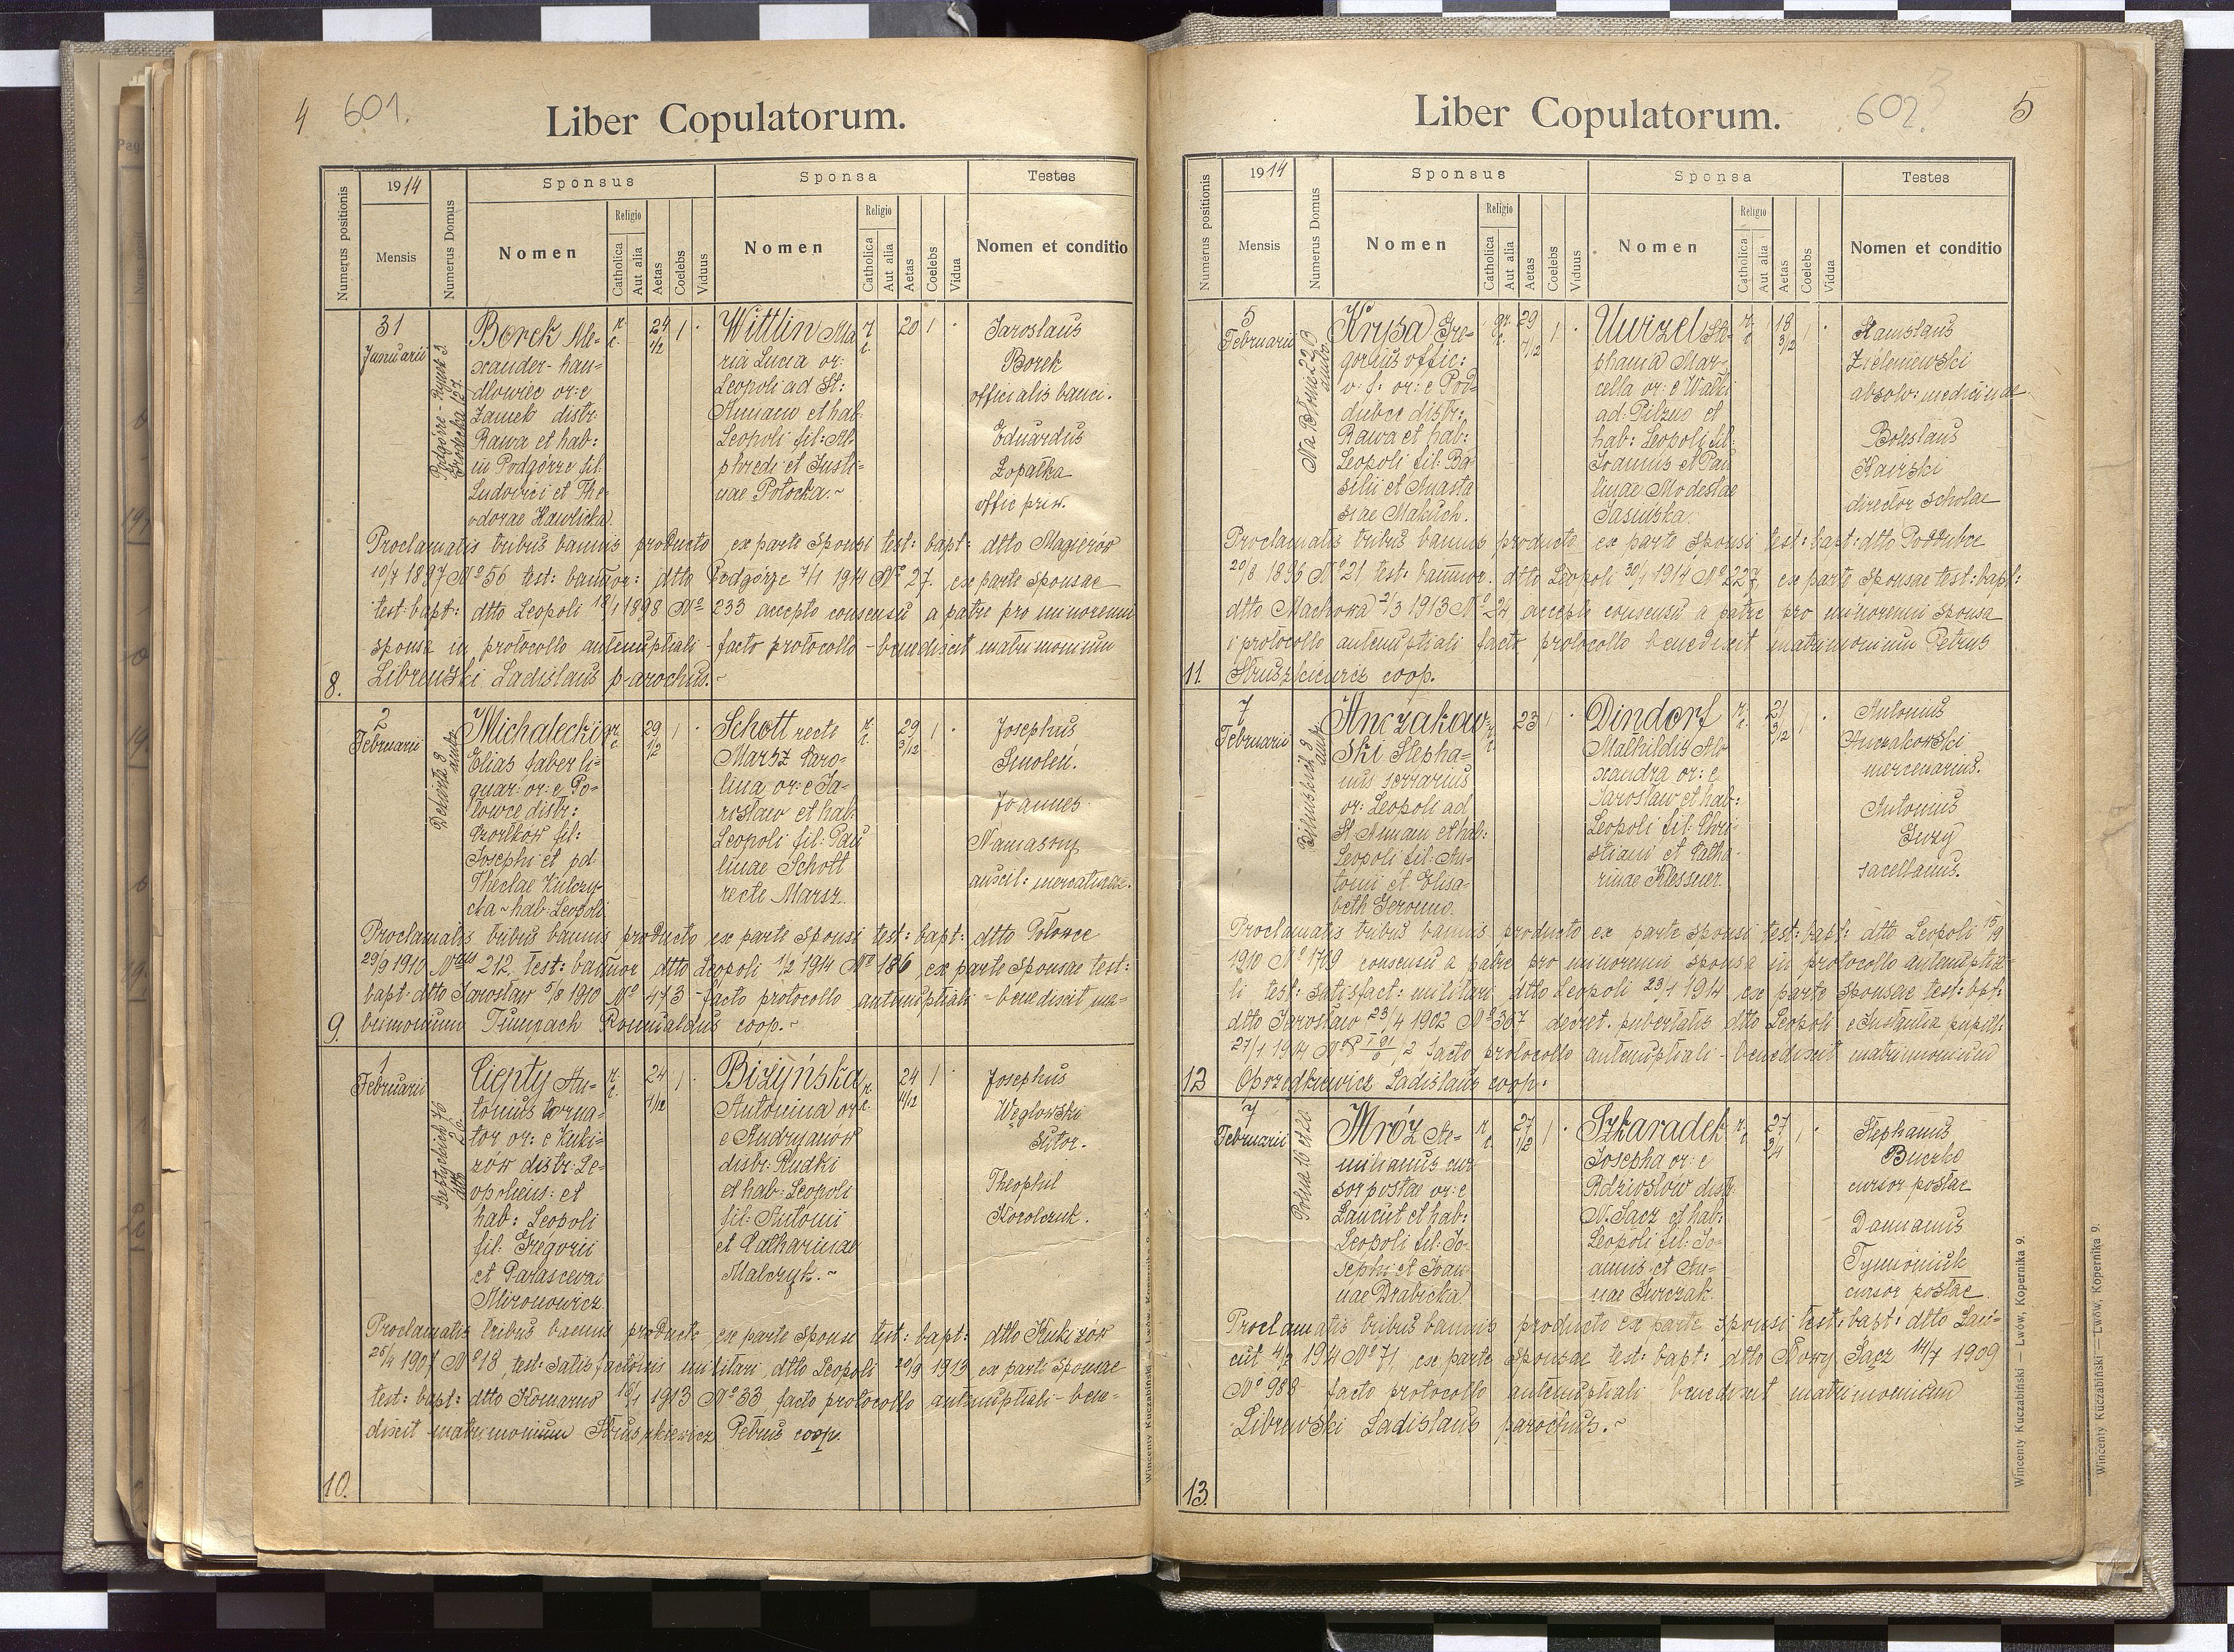 4 601.
Liber Copulatorum.
Numerus positionis
1914
Mensis
Numerus Domus
Sponsus
Nomen
Religio
Catholica
Aut alia
Aetas
Coelebs
Viduus
Sponsa
Nomen
Religio
Catholica
Aut alia
Aetas
Coelebs
Vidua
Testes
Nomen et conditio
8.
31
Januarii
Podgórze - Rynek 3
Grodecka 127.
Borek Ale-
xander - han-
dlowiec or: e
Zamek distr:
Rawa et hab:
in Podgórze fil:
Ludovici et The-
odorae Hawlicka
r. c.
24
1/2
1
Wittlin Ma
ria Lucia or:
Leopoli ad St:
Annam et hab
Leopoli fil: Al-
phredi et Justi-
nae Potocka.~
r. c.
20
1
Jaroslaus
Borek
officialis banci.
Eduardus
Łopatka
offic priv.
Proclamatis tribus bannis producto ex parte sponsi test: bapt: dtto Magierów
10/7 1897 No 56 test: bannor: dtto Podgórze 7/1 1914 No 27. ex parte sponsae
test: bapt: dtto Leopoli 18/1 1898 No 233 accepto consensu a patre pro minorenni
sponsa in protocollo antenuptiali - facto protocollo - benedixit matrimonium
Librewski Ladislaus parochus.~
9.
2
Februarii
Dekerta 8
ambo
Michalecki
Elias faber li-
gnar: or: e Po-
łowce distr:
Czortków fil:
Josephi et pd:
Theclae Kulczy-
cka ~ hab: Leopoli
gr. c.
29
1/2
1
Schott recte
Marsz Caro-
lina or: e Ja-
rosław et hab:
Leopoli fil: Pau
linae Schott
recte Marsz.
r. c.
29
3/12
1
Josephus
Smoleń.
Joannes
auxil: mercaturae.
Proclamatis tribus bannis producto ex parte sponsi test: bapt: dtto Połowce
29/9 1910 212. test: bannor dtto Leopoli 1/2 1914 No 186 ex parte sponsae test:
bapt: dtto Jarosław 5/8 1910 No 473 - facto protocollo antenuptiali - benedixit ma-
trimonium Tumpach Romualdus coop.~
10.
1
Februarii
Ciepty An-
tonius torna-
tor or: e Kuki-
zów distr: Le-
opoliens: et
hab: Leopoli
fil: Gregorii
et Parascevae
Mironowicz.
r. c.
24
4/12
1
Biżyńska
Antonina or:
e Andryanów
distr: Rudki
et hab: Leopoli
fil: Antonii
et Catharinae
Malczyk.~
r. c.
24
11/12
1
Josephus
Węglowski
sutor.
Theophil
Kowalczuk.
Proclamatis tribus bannis producto ex parte sponsi test: bapt: dtto Kukizów
25/4 1907 No 18, test: satisfactionis militari dtto Leopoli 20/9 1913 ex parte sponsae
test: bapt: dtto Komarno 16/1 1913 No 33 facto protocollo antenuptiali - bene-
dixit matrimonium Struszkiewicz Petrus coop.
Wincenty Kuczabiński — Lwów, Kopernika 9.
Liber Copulatorum.
602. 5
Numerus positionis
1914
Mensis
Numerus Domus
Sponsus
Nomen
Religio
Catholica
Aut alia
Aetas
Coelebs
Viduus
Sponsa
Nomen
Religio
Catholica
Aut alia
Aetas
Coelebs
Vidua
Testes
Nomen et conditio
11
5
Februarii
Na Błonie 22
ambo
Krysa Gre-
gorius offic:
v. f. or: e Pod-
dubce distr:
Rawa et hab:
Leopoli fil: Ba-
silii et Anasta
siae Makuch.
gr. c.
29
7/12
1
Uwizel Ste-
phania Mar-
cella or: e Walki
ad Pilzno et
hab: Leopoli fil:
Joannis et Pau
linae Modestae
Jasińska.
r. c.
18
3/12
1
Stanislaus
Zieleniewski
absolv: medicinae
Boleslaus
director scholae
Proclamatis tribus bannis producto ex parte sponsi test: bapt: dtto Poddubce
20/8 1896 No 21 test: bannor. dtto Leopoli 30/1 1914 No 227, ex parte sponsae test: bapt:
dtto Machowa 2/3 1913 No 24 accepto consensu a patre pro minorenni sponsa
i protocollo antenuptiali facto protocollo benedixit matrimonium Petrus
Struszkiewicz coop.
12
7
Februarii
Bilińskich 8
ambo
Anczakow-
ski Stepha-
nus serrarius
or: Leopoli ad
St Annam et hab:
Leopoli fil: An-
tonii et Elisa-
beth
r. c.
23
1
Dindorf
Mathildis Ale
xandra or: e
Jarosław et hab:
Leopoli fil: Chri-
stiani et Catha-
rinae Klessner.
r. c.
21
3/12
1
Antonius
Anczakowski
mercenarius.
Antonius
sacellanus.
Proclamatis tribus bannis producto ex parte sponsi test: bapt: dtto Leopoli 15/9
1910 No 1709 consensu a patre pro minorenni sponsa in protocollo antenuptia-
li test: satisfact: militari dtto Leopoli 23/1 1914 ex parte sponsae test: bpt:
dtto Jarosław 23/4 1902 No 367 decret. pubertatis dtto Leopoli pupill:
27/1 1914 facto protocollo antenuptiali - benedixit matrimonium
Obrzędkiewicz Ladislaus coop.
13.
7
Februarii
Polna 16 et 20.
Mróz Ae-
milianus cur
sor postae or: e
Łańcut et hab:
Leopoli fil: Jo-
sephi et Joan
nae Drabicka
r. c.
27
1/2
1
Szkaradek
Josepha or: e
Rdziostów distr
N. Sącz et hab:
Leopoli fil: Jo-
annis et An-
nae Jurczak.
r. c.
27
3/4
1
Stephanus
Buczko
cursor postae
Damianus
Tymoniuk
cursor postae.
Proclamatis tribus bannis producto ex parte sponsi test: bapt: dtto Łań-
cut 4/2 1914 No 71, ex parte sponsae test: bapt: dtto Nowy Sącz 14/7 1909
No 988 facto protocollo antenuptiali benedixit matrimonium
Librewski Ladislaus parochus.~
Wincenty Kuczabiński — Lwów, Kopernika 9.
Wincenty Kuczabiński — Lwów, Kopernika 9.